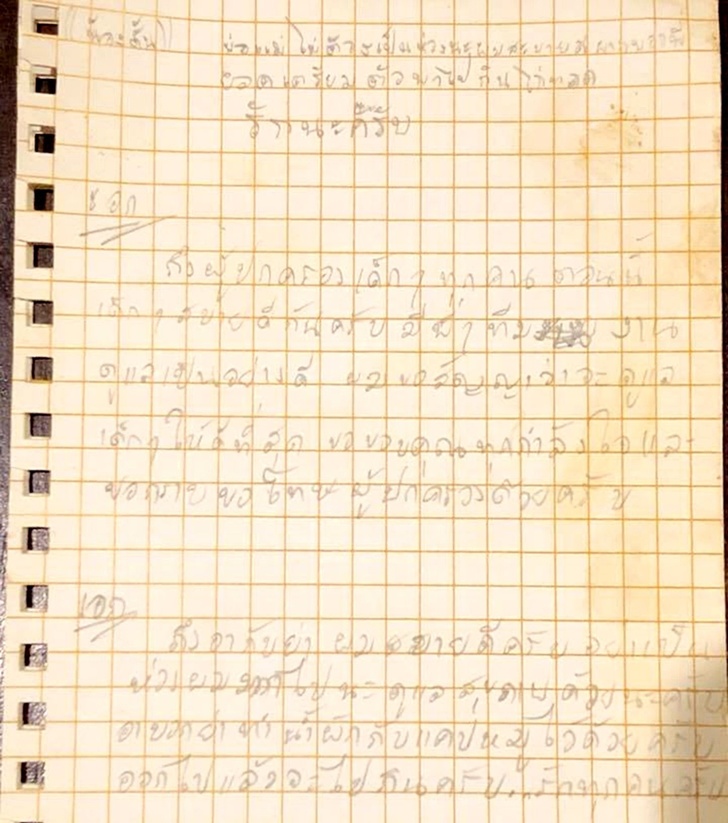 ((น้องตั้น)) พ่อแม่ ไม่ต้องเป็นห่วงนะผมสบายดี
ยอด เตรียมตัวพาไปกินไก่ทอด
รักนะครับ
โค้ช เอก
ถึงผู้ปกครองเด็กๆ ทุกคน ตอนนี้
เด็กๆ สบายดีกันครับ มีพี่ๆ ทีมงาน
ดูแลเป็นอย่างดี ผมขอสัญญาว่าจะดูแล
เด็กๆ ให้ดีที่สุด ขอขอบคุณทุกกำลังใจและ
ขอกราบขอโทษผู้ปกครองด้วยครับ
เอก
ถึงอากับย่า ผมสบายดีครับ อย่าเป็น
ห่วงผมมากไปนะ ดูแลสุขภาพด้วยนะครับ
อาบอกย่าทำน้ำผักกับแคปหมูไว้ด้วยครับ
ออกไปแล้วจะไปกินครับ...รักทุกคนครับ